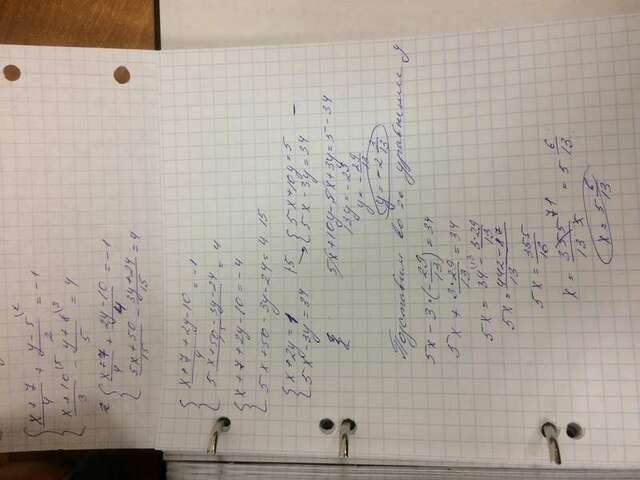 { (x+7)/4 + (y-5)/2 \2 = -1
(x+10)/3 \5 - (y+8)/5 \3 = 4
{ (x+7)/4 + (2y-10)/4 = -1
(5x+50)/15 - (3y+24)/15 = 4
{ (x+7+2y-10)/4 = -1
(5x+50-3y-24)/15 = 4
{ x+7+2y-10=-4
5x+50-3y-24=4·15
{ x+2y=1 |5 → { 5x+10y=5
5x-3y=34 { 5x-3y=34
5x+10y-5x+3y=5-34
13y=-29
y=-29/13
y=-2 3/13
Подставим во 2e уравнение y
5x-3·(-29/13)=34
5x+(3·29)/13=34
5x=34\13-(3·29)/13
5x=(442-87)/13
5x=355/13
x=355/(13·5) 71 = 5 6/13
x=5 6/13